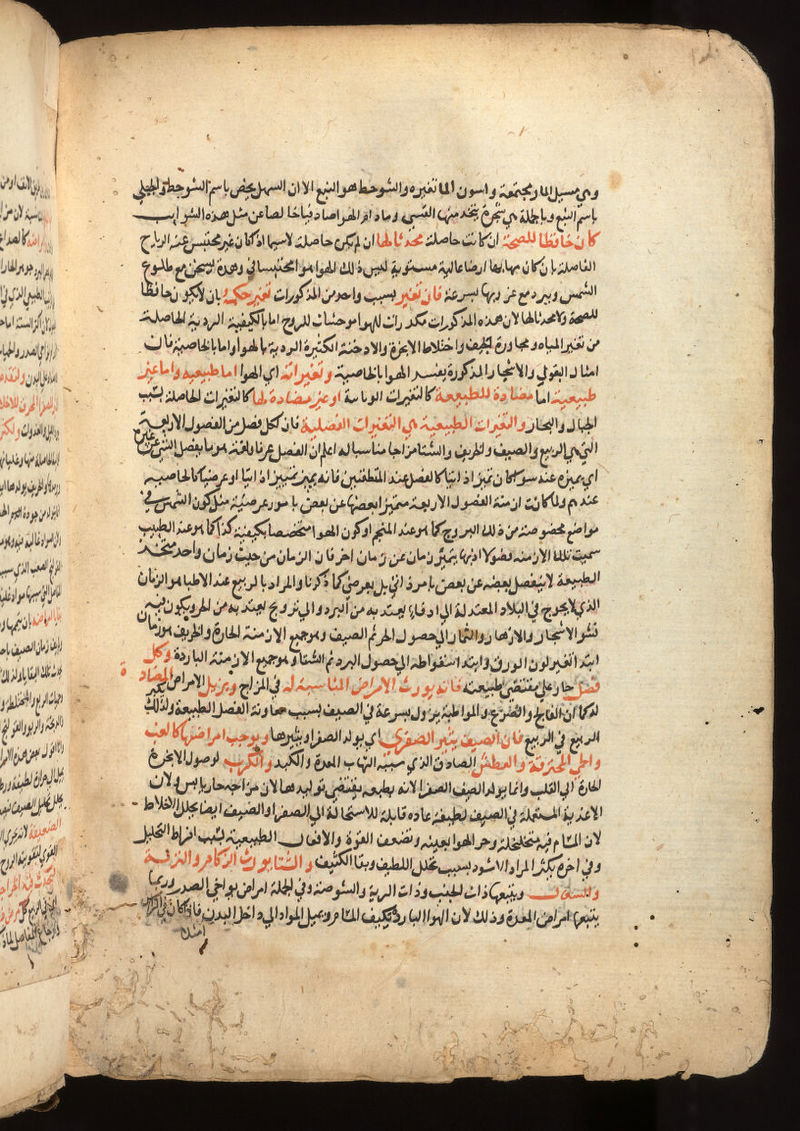 وهي مسيل الماء ومجتمعة واسون الماء تغيره والشوحط هو النبع الا ان السهلي يخص باسم الشوحط والجبلي
باسم النبع وبالجملة هي شجرة يتخذ منها القسي وما دام الهواء صادقيا خالصا عن مثل هذه الشوايب
كان حافظا للصحة ان كانت حاصلة محدثا لها ان لم يكن حاصلة لاسيما اذ كان غير محتبس عنه الرياح
الفاضلة بان كان مهابها ارضا عالية مستوية ليس ذلك الهوا هوا محتبسا في وهدة تسخن مع طلوع
الشمس ويبرد مع غروبها بسرعة فان تغير بسبب واحد من المذكورات تغير حكمه بان لا يكون حافظا
للصحة ولا محدثا لها لان هذه المذكورات مكدرات للهوا موحشات للروح اما بالكيفية الردية الحاصلة
من تغير المياه ومجاورة الجيف واختلاط الابخرة والادخنة الكثيرة الردية بالهوا واما بالخاصية فان
امثال البقول والاشجار المذكورة يفسد الهوا بالخاصية وتغيراته اي الهوا اما طبيعيه واما غير
طبيعية اما مضادة للطبيعة كالتغيرات الوبائية او غير مضادة لها كالتغيرات الحاصلة بسبب
الجبال والبحار والتغيرات الطبيعية هي التغيرات الفصلية فان كل فصل من الفصول الاربعة
التي هي الربيع والصيف والخريف والشتا مزاجا مناسبا له اعلم ان الفصل عرفا ولغة هو ما يفصل الشي عن غيره
اي يميزه عنه سوا كان تميزا ذاتيا كالفصل عند المنطقيين فانه يميز تمييزا ذاتيا او عرضيا كالخاصية
عندهم ولما كانت ازمنة الفصول الاربعة متميزا بعضها عن بعض بامور عرضية مثل كون الشمس في
مواضع مخصوصة من فلك البروج كما هو عند المنجم او كون الهوا متخصصا بكيفية كذا كما هو عند الطبيب
سميت تلك الازمنة فصولا اذ بها يتميز زمان عن زمان اخر فان الزمان من حيث زمان واحد متحد
الطبيعة لا ينفصل بعضه عن بعض بامر ذاتي بل بعرضي كما ذكرنا والمراد بالربيع عند الاطبا هو الزمان
الذي لا يحوج في البلاد المعتدلة الى ادفاء يعتد به من البرد والى ترويح يعتد به من الحر ويكون فيه
نشو الاشجار والازهار والثمار الى حصول الحر ثم الصيف وهو جميع الازمنة الحارة والخريف هو زمان
ابتدا تغير لون الورق وابتدا سقوطه الى حصول البرد ثم الشتا وهو جميع الازمنة الباردة وكل
فصل جار على مقتضى طبيعته فانه يورث الامراض المناسبة له في المزاج ويزيل الامراض المضاد
له كما ان الفالج والصرع والمواظبة يزول بسرعة في الصيف بسبب معاونة الفصل الطبيعة ولذلك يكثر
الربيع في الربيع فان الصيف يثير الصفري اي يولد الصفرا ويثيرها ويوجب امراضها كالغب
والحمى المحترقة والعطش الصادق الذي سببه التهاب المعدة والكبد والكرب لوصول الابخرة
الحارة الى القلب وانما يولد الصيف الصفرا لانه بطبعه يقتضي توليدها لان مزاجه حار يابس ولان
الاغذية المستعملة في الصيف لطيفة عاده قابلة للاستحالة الى الصفرا والصيف ايضا يحلل الاخلاط
لان المسام فيه متخلخلة وحر الهوا يعينه وتضعف القوة والافعال الطبيعية بسبب افراط التحليل
وفي اخره يكثر المرار الاسود بسبب تحلل اللطيف وبقا الكثيف والشتا يورث الزكام والنزلة
والسعال ويتبعها ذات الجنب وذات الرية والشوصة وفي الجملة امراض نواحي الصدر وربما
يتبعها امراض المعدة وذلك لان الهوا البارد يكثف المسام ويميل المواد الى داخل البدن فاذا كان في الراس
امتلا